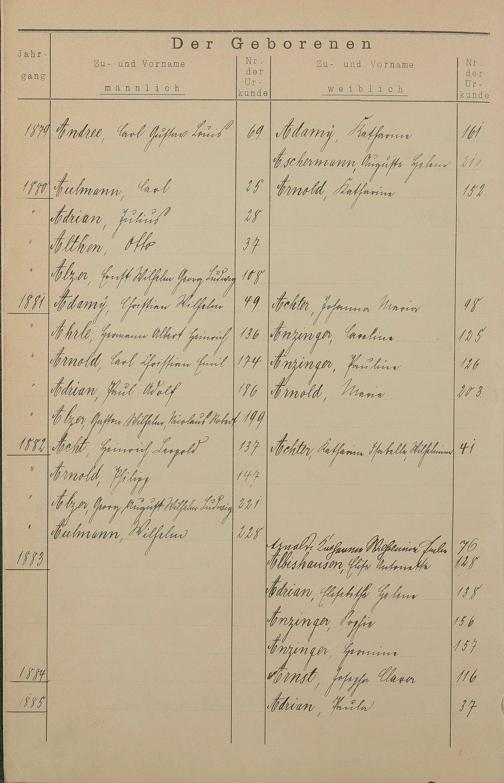 Der Geborenen
Jahr-
gang
Zu- und Vorname
männlich
Nr.
der
Ur-
kunde
Zu- und Vorname
weiblich
Nr.
der
Ur-
kunde
1879 Andree, Carl Gustav Louis 69 Adamy, Katharine 161
Aschermann, Auguste Helene 210
1880 Aulmann, Carl 25 Arnold, Katharine 152
" Adrian, Julius 28
" Althen, Otto 37
" Alzer, Ernst Wilhelm Georg Ludwig 108
1881 Adamy, Christian Wilhelm 49 Achter, Johanna Maria 98
" Ahrle, Hermann Albert Heinrich 136 Anzinger, Caroline 125
" Arnold, Carl Christian Emil 174 Anzinger, Pauline 126
" Adrian, Paul Adolf 186 Arnold, Maria 203
" Alzer, Gustav Wilhelm Nicolaus Robert 199
1882 Acht, Heinrich Leopold 137 Achter, Katharine Isabella Wilhelmine 41
" Arnold, Philipp 147
" Alzer Georg August Wilhelm Ludwig 221
" Aulmann, Wilhelm 228
Arnold, Wilhelmine 76
1883 Albishausen, Elise Antonette 128
Adrian, Elisabethe Helene 138
Anzinger, Sophie 156
Anzinger, Hermine 157
1884 Arnst, Josepha Clara 116
1885 Adrian, Paula 37